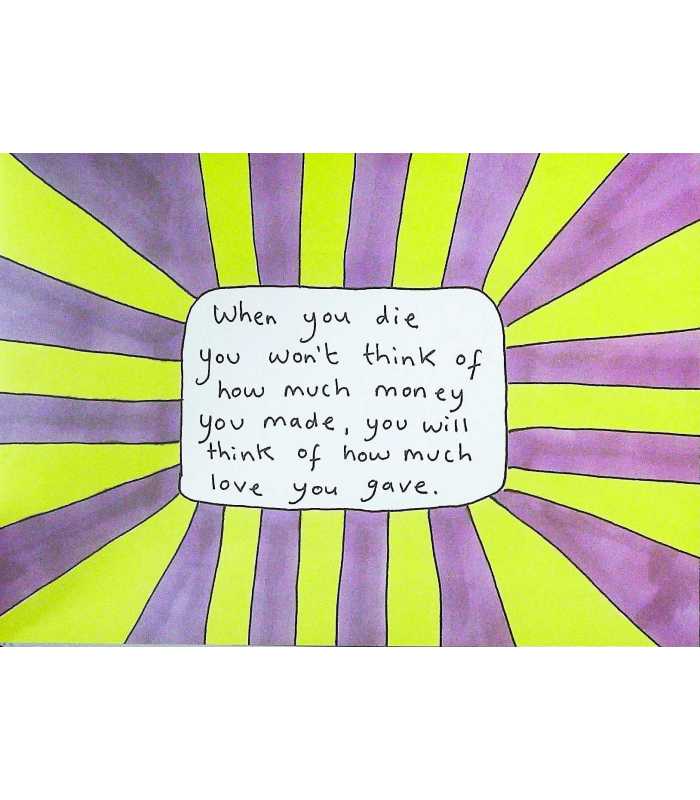 When you die
you won't think of
how much money
you made, you will
think of how much
love you gave.